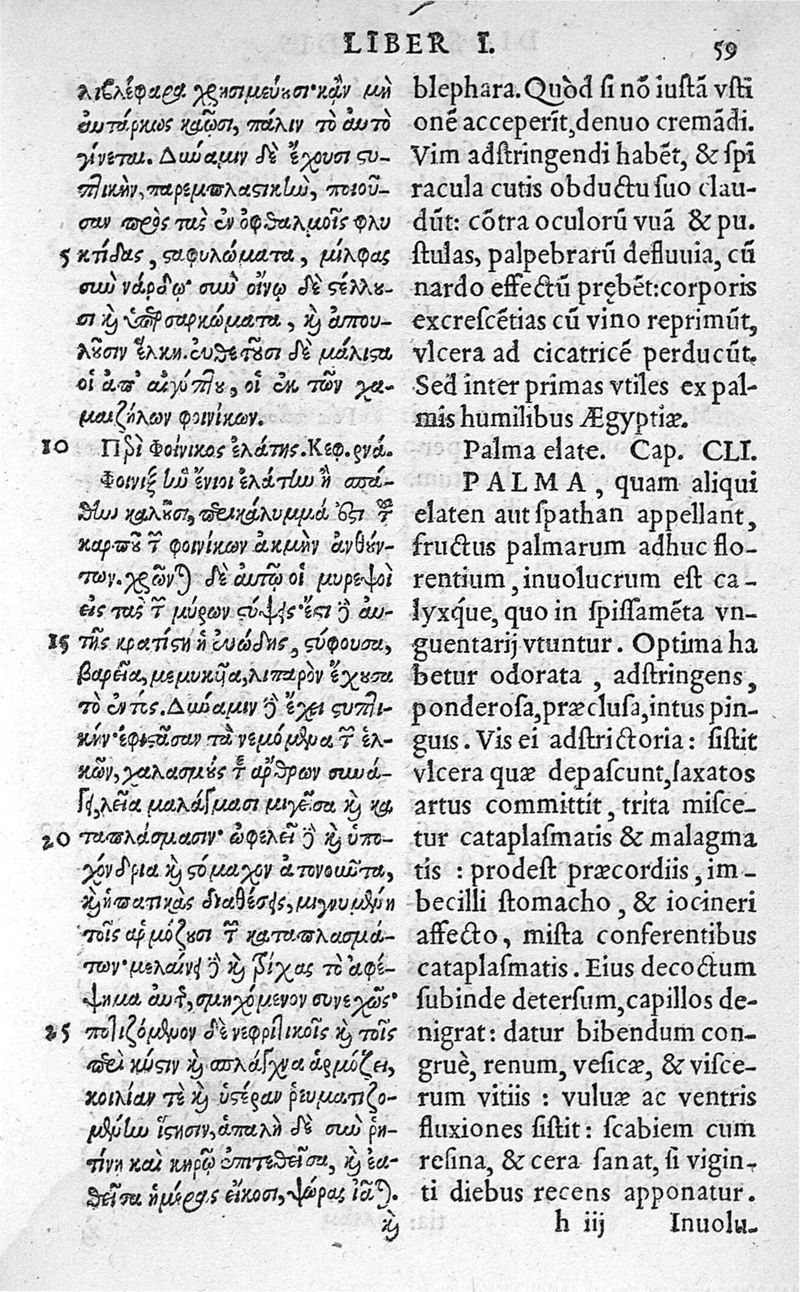 LIBER I. 59
λιβλέφαρα χρησιμεύουσι· κἂν μὴ
αὐτάρκως καῶσι, πάλιν τὸ αὐτὸ
γίνεται. Δύναμιν δὲ ἔχουσι στυ-
πτικὴν, παρεμπλαστικὴν, ποιοῦ-
σαν πρὸς τὰς ἐν ὀφθαλμοῖς φλυ
5 κτίδας, σταφυλώματα, μίλφας
σὺν νάρδῳ· σὺν οἴνῳ δὲ στέλλου-
σι καὶ ὑπερσαρκώματα, καὶ ἀπου-
λοῦσιν ἕλκη. εὐθετοῦσι δὲ μάλιστα
οἱ ἀπ' αἰγύπτου, οἱ ἐκ τῶν χα-
μαιζήλων φοινίκων.
10 Περὶ Φοίνικος ἐλάτης. Κεφ. ρνά.
Φοινιξ ἣν ἔνιοι ἐλάτην ἢ σπά-
θην καλοῦσι, περικάλυμμά ἐστι τοῦ
καρποῦ τῶν φοινίκων ἀκμὴν ἀνθούν-
των. χρῶνται δὲ αὐτῷ οἱ μυρεψοὶ
εἰς τὰς τῶν μύρων στύψεις· ἔστι δὲ αὐ-
15 τῆς κρατίστη ἡ εὐώδης, στύφουσα,
βαρεῖα, μεμυκυῖα, λιπαρὸν ἔχουσα
τὸ ἐντός. Δύναμιν δὲ ἔχει στυπτι-
κήν· ἐφιστᾶσαν τὰ νεμόμενα τῶν ἑλ-
κῶν, χαλασμούς τε ἄρθρων συνά-
γει, λεῖα μαλάγμασι μιγεῖσα καὶ κα
20 ταπλάσμασιν· ὠφελεῖ δὲ καὶ ὑπο-
χόνδρια καὶ στόμαχον ἀτονοῦντα,
καὶ ἡπατικὰς διαθέσεις, μιγνυμένη
τοῖς ἁρμόζουσι τῶν καταπλασμά-
των· μελαίνει δὲ καὶ τρίχας τὸ ἀφέ-
ψημα αὐτῆς, σμηχόμενον συνεχῶς·
25 ποτιζόμενον δὲ νεφριτικοῖς καὶ τοῖς
περὶ κύστιν καὶ σπλάγχνα ἁρμόζει,
κοιλίαν τὲ καὶ ὑστέραν ῥευματιζο-
μένην ἵστησιν, ἁπαλὴ δὲ σὺν ῥη-
τίνη καὶ κηρῷ ἐπιτεθεῖσα, καὶ ἐα-
θεῖσα ἡμέρας εἴκοσι, ψώρας ἰᾶται.
καὶ
blephara. Quòd si nō iustā vsti
onē acceperīt, denuo cremādi.
Vim adstringendi habēt, & spi
racula cutis obductu suo clau-
dūt: cōtra oculorū vuā & pu-
stulas, palpebrarū defluuia, cū
nardo effectū prębēt: corporis
excrescētias cū vino reprimūt,
vlcera ad cicatricē perducūt.
Sed inter primas vtiles ex pal-
mis humilibus Ægyptiæ.
Palma elate. Cap. CLI.
PALMA, quam aliqui
elaten aut spathan appellant,
fructus palmarum adhuc flo-
rentium, inuolucrum est ca-
lyxq́ue, quo in spissamēta vn-
guentarij vtuntur. Optima ha
betur odorata, adstringens,
ponderosa, præclusa, intus pin-
guis. Vis ei adstrictoria: sistit
vlcera quæ depascunt, laxatos
artus committit, trita misce-
tur cataplasmatis & malagma
tis: prodest præcordiis, im-
becilli stomacho, & iocineri
affecto, mista conferentibus
cataplasmatis. Eius decoctum
subinde detersum, capillos de-
nigrat: datur bibendum con-
gruè, renum, vesicæ, & visce-
rum vitiis: vuluæ ac ventris
fluxiones sistit: scabiem cum
resina, & cera sanat, si vigin-
ti diebus recens apponatur.
h iij Inuolu-